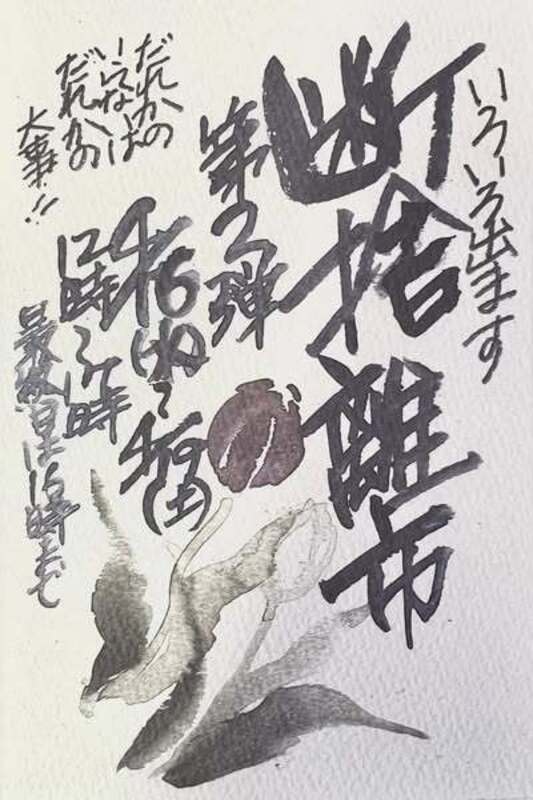 いろいろ出ます
断捨離市
第2弾
4/6(水)〜4/9(土)
12時〜17時
最終日は15時まで
だれかの
いらないは
だれかの
大事!!